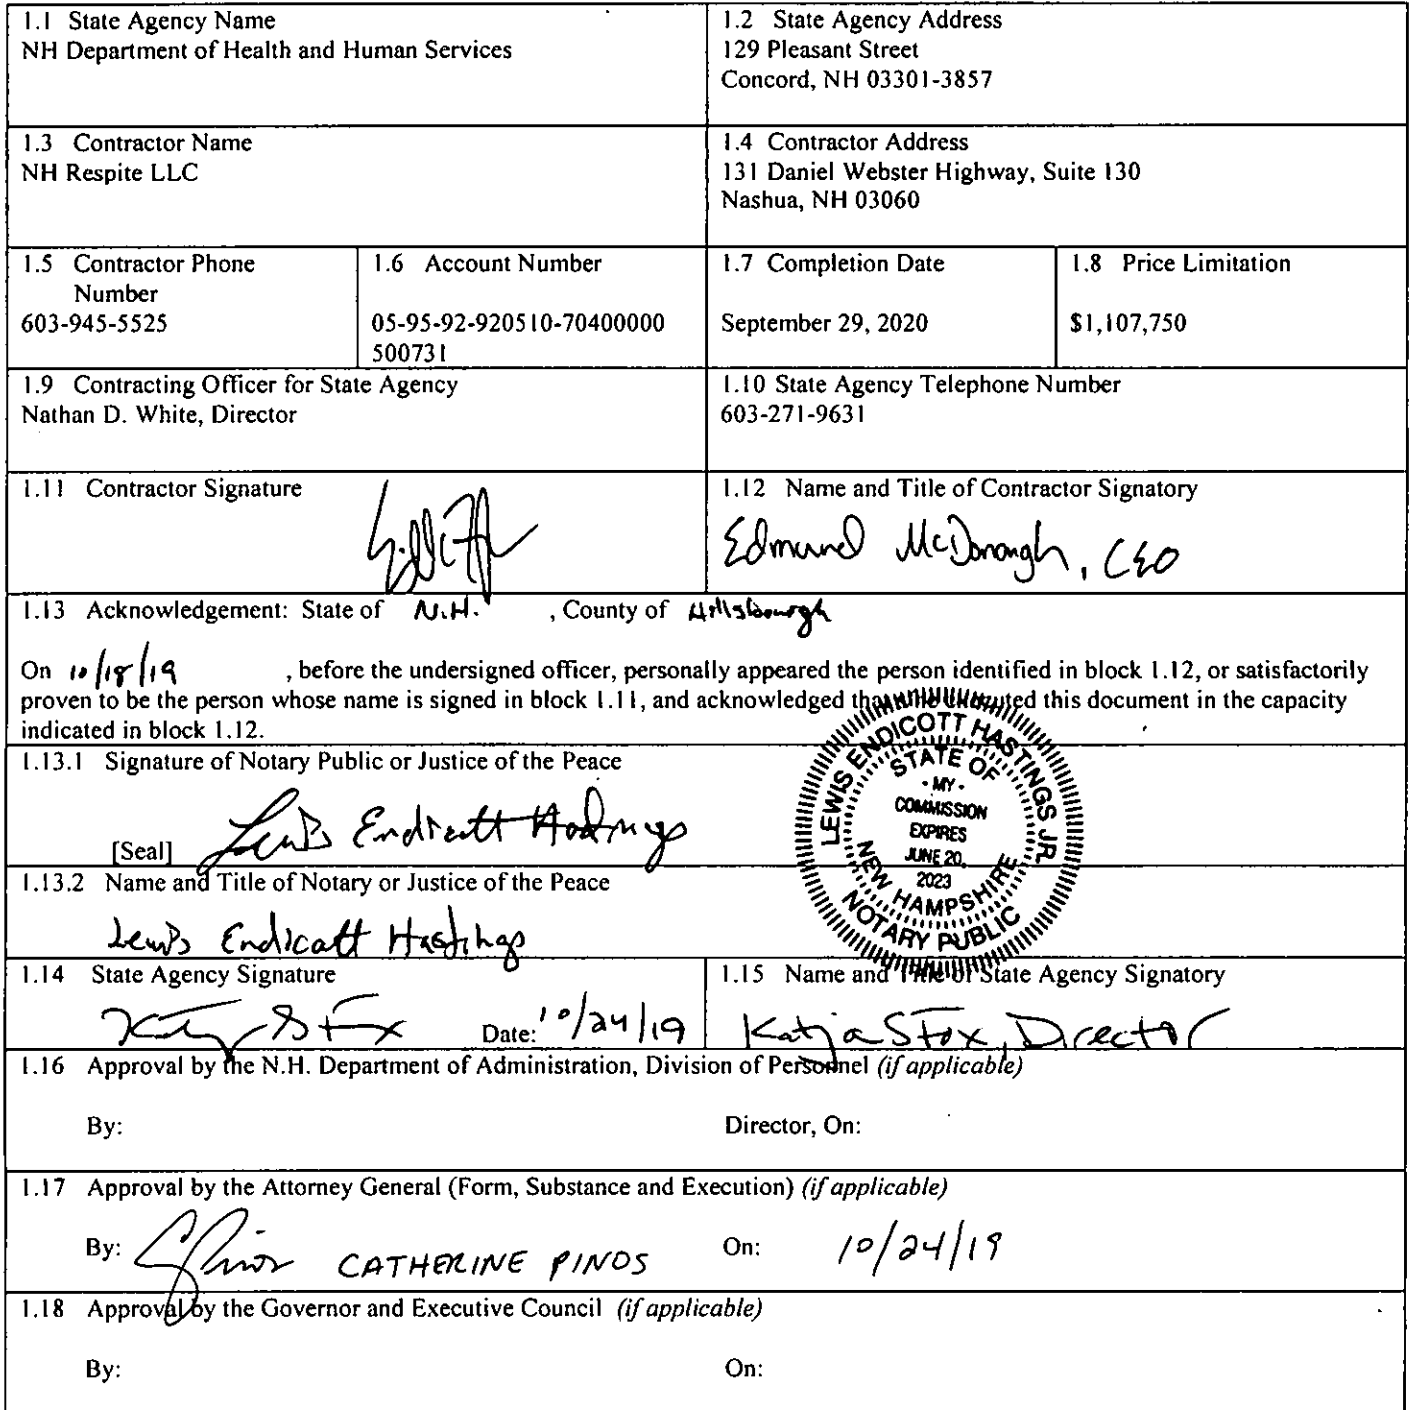 1.1 State Agency Name
NH Department of Health and Human Services
1.2 State Agency Address
129 Pleasant Street
Concord, NH 03301-3857
1.3 Contractor Name
NH Respite LLC
1.4 Contractor Address
131 Daniel Webster Highway, Suite 130
Nashua, NH 03060
1.5 Contractor Phone
Number
603-945-5525
1.6 Account Number
05-95-92-920510-70400000
500731
1.7 Completion Date
September 29, 2020
1.8 Price Limitation
$1,107,750
1.9 Contracting Officer for State Agency
Nathan D. White, Director
1.10 State Agency Telephone Number
603-271-9631
1.11 Contractor Signature
1.12 Name and Title of Contractor Signatory
Edmund McDonough, CEO
1.13 Acknowledgement: State of N.H. , County of Hillsborough
On 10/18/19 , before the undersigned officer, personally appeared the person identified in block 1.12, or satisfactorily
proven to be the person whose name is signed in block 1.11, and acknowledged this document in the capacity
indicated in block 1.12.
1.13.1 Signature of Notary Public or Justice of the Peace
[Seal] Lewis Endicott Hastings
LEWIS ENDICOTT HASTINGS JR
STATE OF
- MY -
COMMISSION
EXPIRES
JUNE 20,
2023
NEW HAMPSHIRE
NOTARY PUBLIC
1.13.2 Name and Title of Notary or Justice of the Peace
Lewis Endicott Hastings
1.14 State Agency Signature
Date: 10/24/19
1.15 Name and Title of State Agency Signatory
Katja S Fox, Director
1.16 Approval by the N.H. Department of Administration, Division of Personnel (if applicable)
By: Director, On:
1.17 Approval by the Attorney General (Form, Substance and Execution) (if applicable)
By: CATHERINE PINOS On: 10/24/19
1.18 Approval by the Governor and Executive Council (if applicable)
By: On: